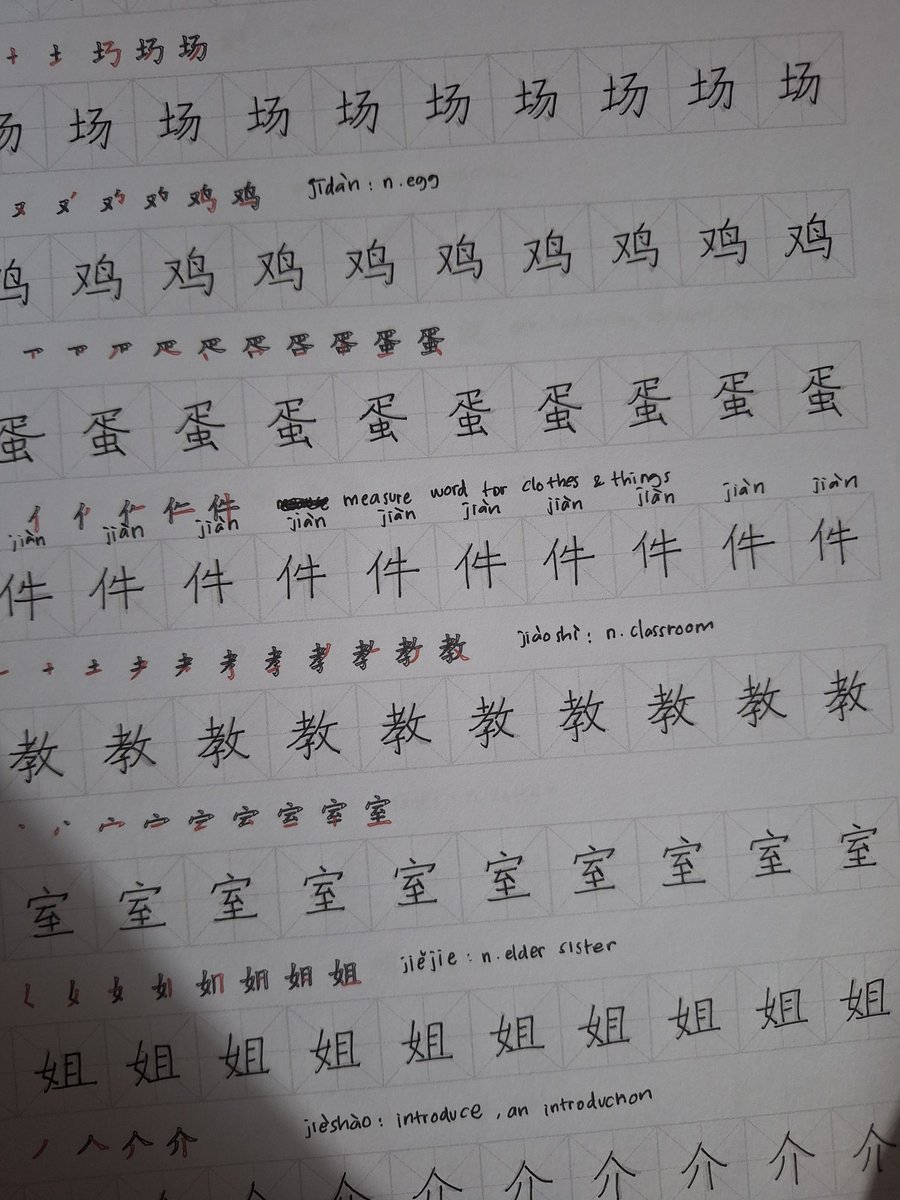 场 场
场 场 场 场 场 场 场 场 场 场
鸡 鸡 jīdàn : n. egg
鸡 鸡 鸡 鸡 鸡 鸡 鸡 鸡 鸡 鸡
蛋 蛋
蛋 蛋 蛋 蛋 蛋 蛋 蛋 蛋 蛋 蛋
亻 仁 件 measure word for clothes & things
jiàn jiàn jiàn jiàn jiàn jiàn jiàn jiàn jiàn jiàn
件 件 件 件 件 件 件 件 件 件
一 十 土 耂 考 孝 教 jiàoshì : n. classroom
教 教 教 教 教 教 教 教 教 教
宀 室 室
室 室 室 室 室 室 室 室 室 室
女 姐 jiějie : n. elder sister
姐 姐 姐 姐 姐 姐 姐 姐 姐 姐
丿 人 介 jièshào : introduce , an introduction
介 介 介 介 介 介